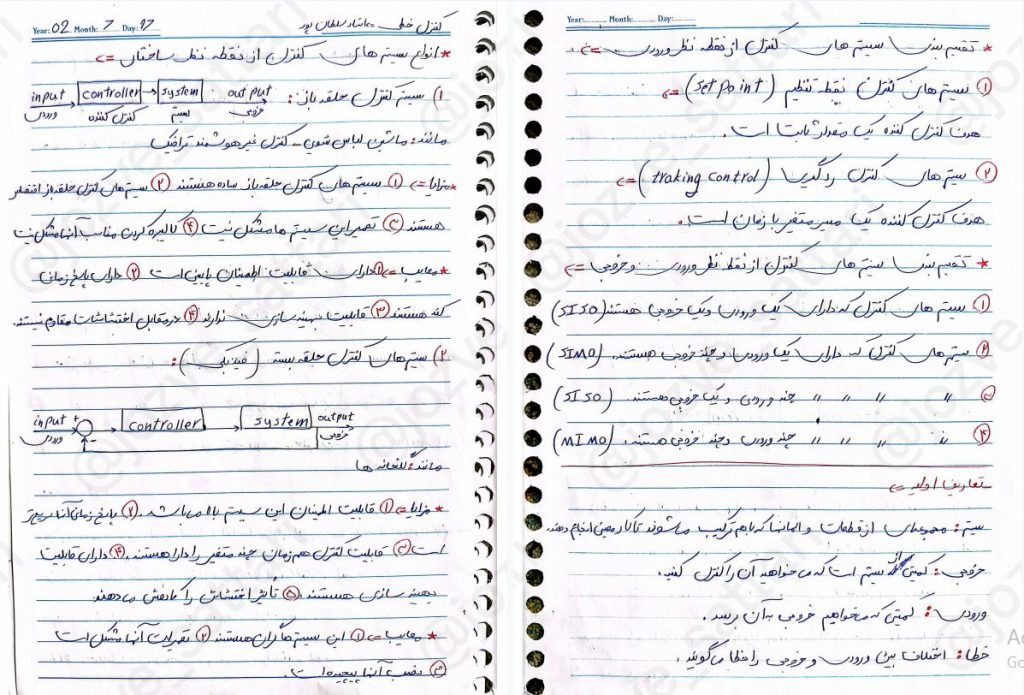 Year: 02 Month: 7 Day: 27
کنترل خطی - استاد سلطان پور
* انواع سیستم های کنترل از نقطه نظر ساختار =>
۱) سیستم کنترل حلقه باز :
input controller system output
ورودی کنترل کننده سیستم خروجی
مانند: ماشین لباس شویی - کنترل غیر هوشمند ترافیک
* مزایا => ① سیستم های کنترل حلقه باز ساده هستند ② سیستم های کنترل حلقه باز اقتصادی
هستند ③ تعمیر این سیستم ها مشکل نیست ④ کالیبره کردن مناسب آنها مشکل نیست
* معایب => ① دارای قابلیت اطمینان پایینی است ② دارای پاسخ زمانی
کند هستند ③ قابلیت بهینه سازی ندارند ④ در مقابل اغتشاشات مقاوم نیستند.
۲) سیستم های کنترل حلقه بسته (فیدبکی) :
input + controller system output
ورودی - خروجی
مانند: گلخانه ها
* مزایا => ① قابلیت اطمینان این سیستم بالا می باشد. ② پاسخ زمانی آنها سریع تر
است ③ قابلیت کنترل هم زمان چند متغیر را دارا هستند. ④ دارای قابلیت
بهینه سازی هستند. ⑤ تأثیر اغتشاش را کاهش می دهند
* معایب => ① این سیستم ها گران هستند ② تعمیرات آنها مشکل است
③ نصب آنها پیچیده است.
Year: Month: Day:
* تقسیم بندی سیستم های کنترل از نقطه نظر ورودی =>
① سیستم های کنترل نقطه تنظیم (set point) =>
هدف کنترل کننده یک مقدار ثابت است.
② سیستم های کنترل ردگیری (traking control) =>
هدف کنترل کننده یک مسیر متغیر با زمان است.
* تقسیم بندی سیستم های کنترل از نقطه نظر ورودی و خروجی =>
① سیستم های کنترل که دارای یک ورودی و یک خروجی هستند (SISO)
② سیستم های کنترل که دارای یک ورودی و چند خروجی هستند. (SIMO)
③ " " " " چند ورودی و یک خروجی هستند. (SISO)
④ " " " " چند ورودی و چند خروجی هستند. (MIMO)
تعاریف اولیه =>
سیستم: مجموعه ای از قطعات و المانها که با هم ترکیب می شوند تا کار معینی انجام دهند.
خروجی: کمیتی از سیستم است که می خواهید آن را کنترل کنید.
ورودی: کمیتی که می خواهیم خروجی به آن برسد.
خطا: اختلاف بین ورودی و خروجی را خطا می گویند.
@jozve_sattari